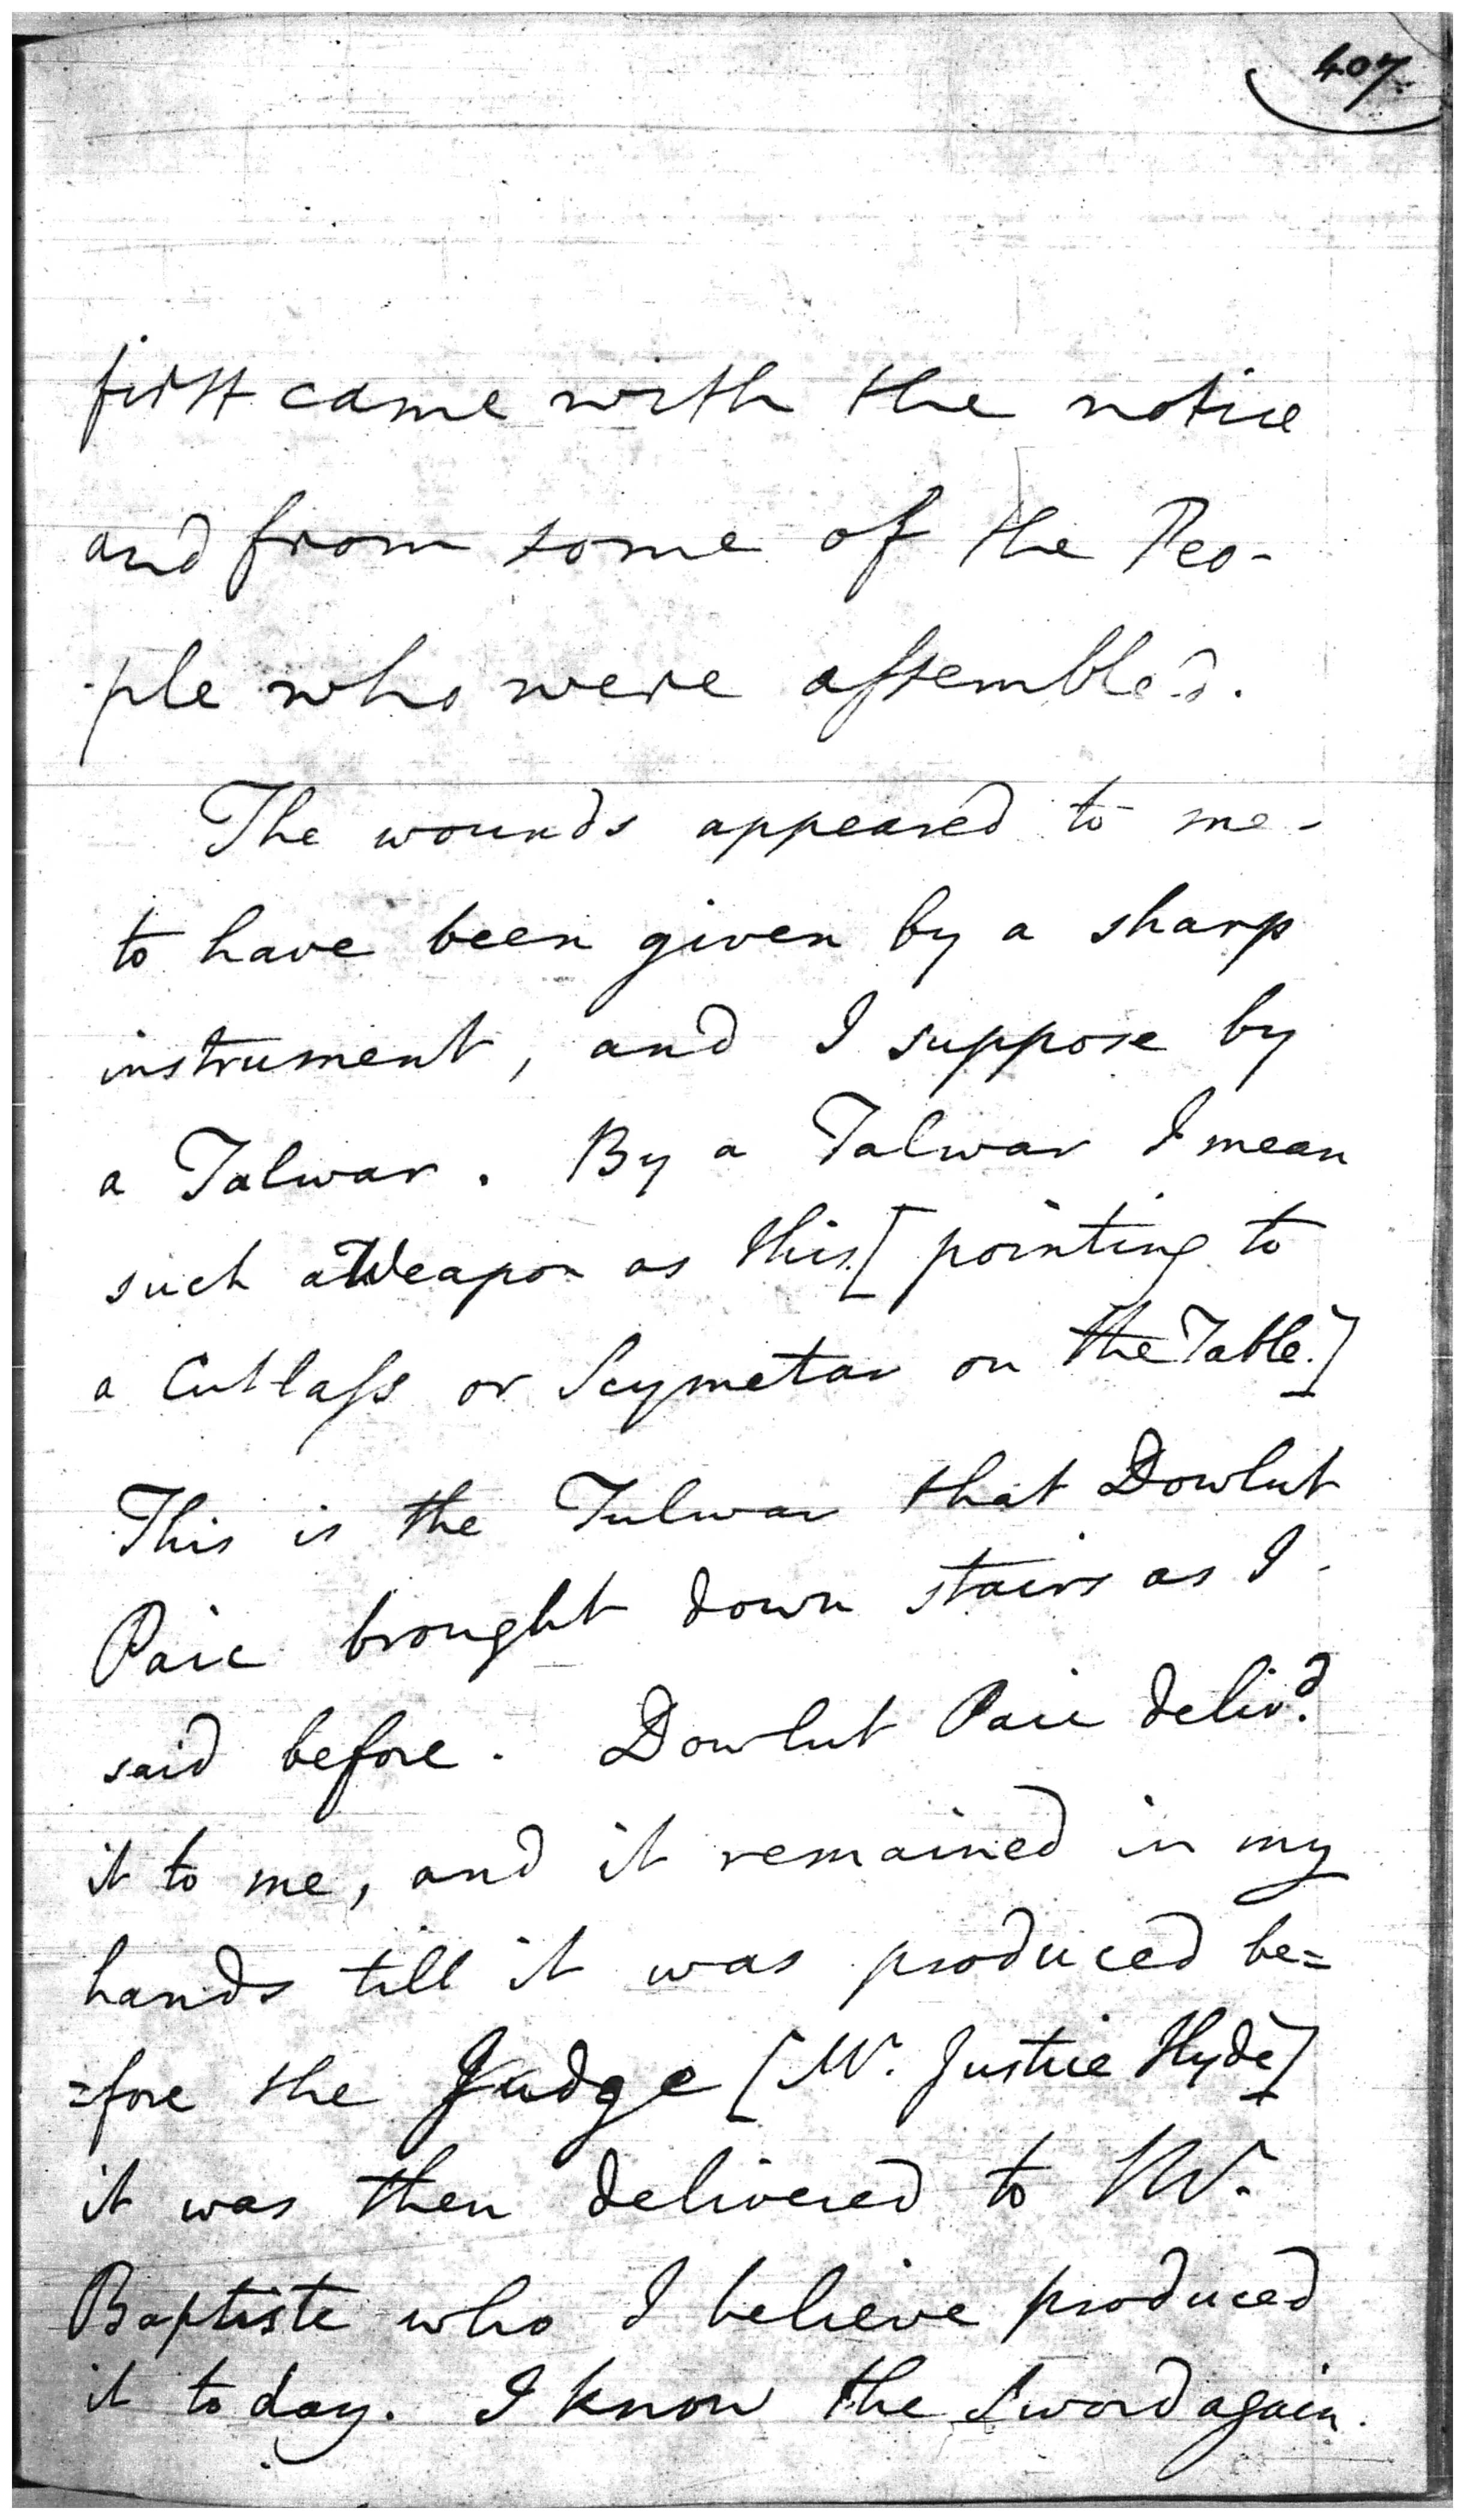 407.
first came with the notice
and from some of the Peo-
-ple who were assembled.
The wounds appeared to me-
to have been given by a sharp
instrument, and I suppose by
a Talwar. By a Talwar I mean
such a Weapon as this [pointing to
a Cutlass or Scymetar on the Table.]
This is the Tulwar that Dowlut
Paie brought down stairs as I
said before. Dowlut Paie delivd.
it to me, and it remained in my
hands till it was produced be=
=fore the Judge [Mr. Justice Hyde]
it was then delivered to Mr.
Baptiste who I believe produced
it to day. I know the Sword again.